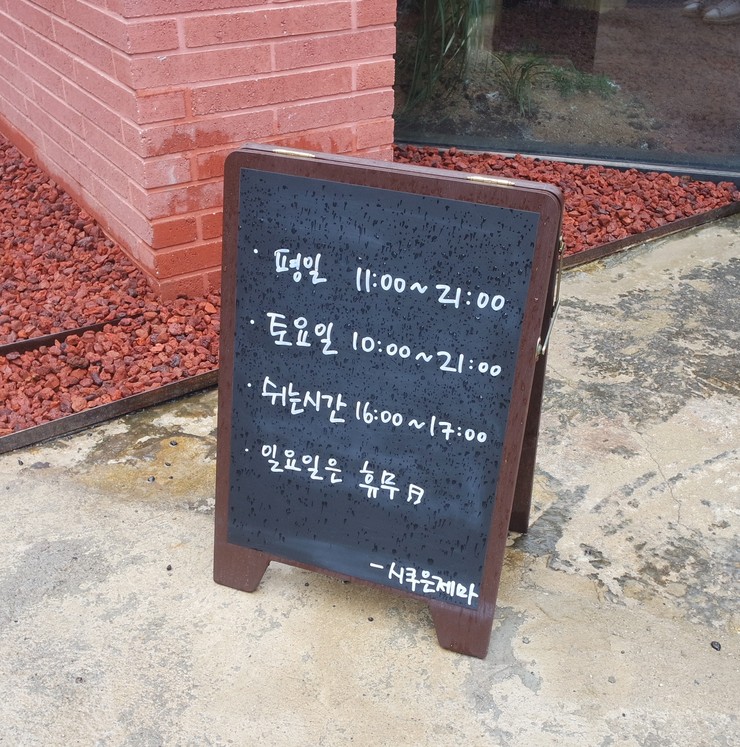 · 평일 11:00~21:00
· 토요일 10:00~21:00
· 쉬는시간 16:00~17:00
· 일요일은 휴무
- 시쿠은제마